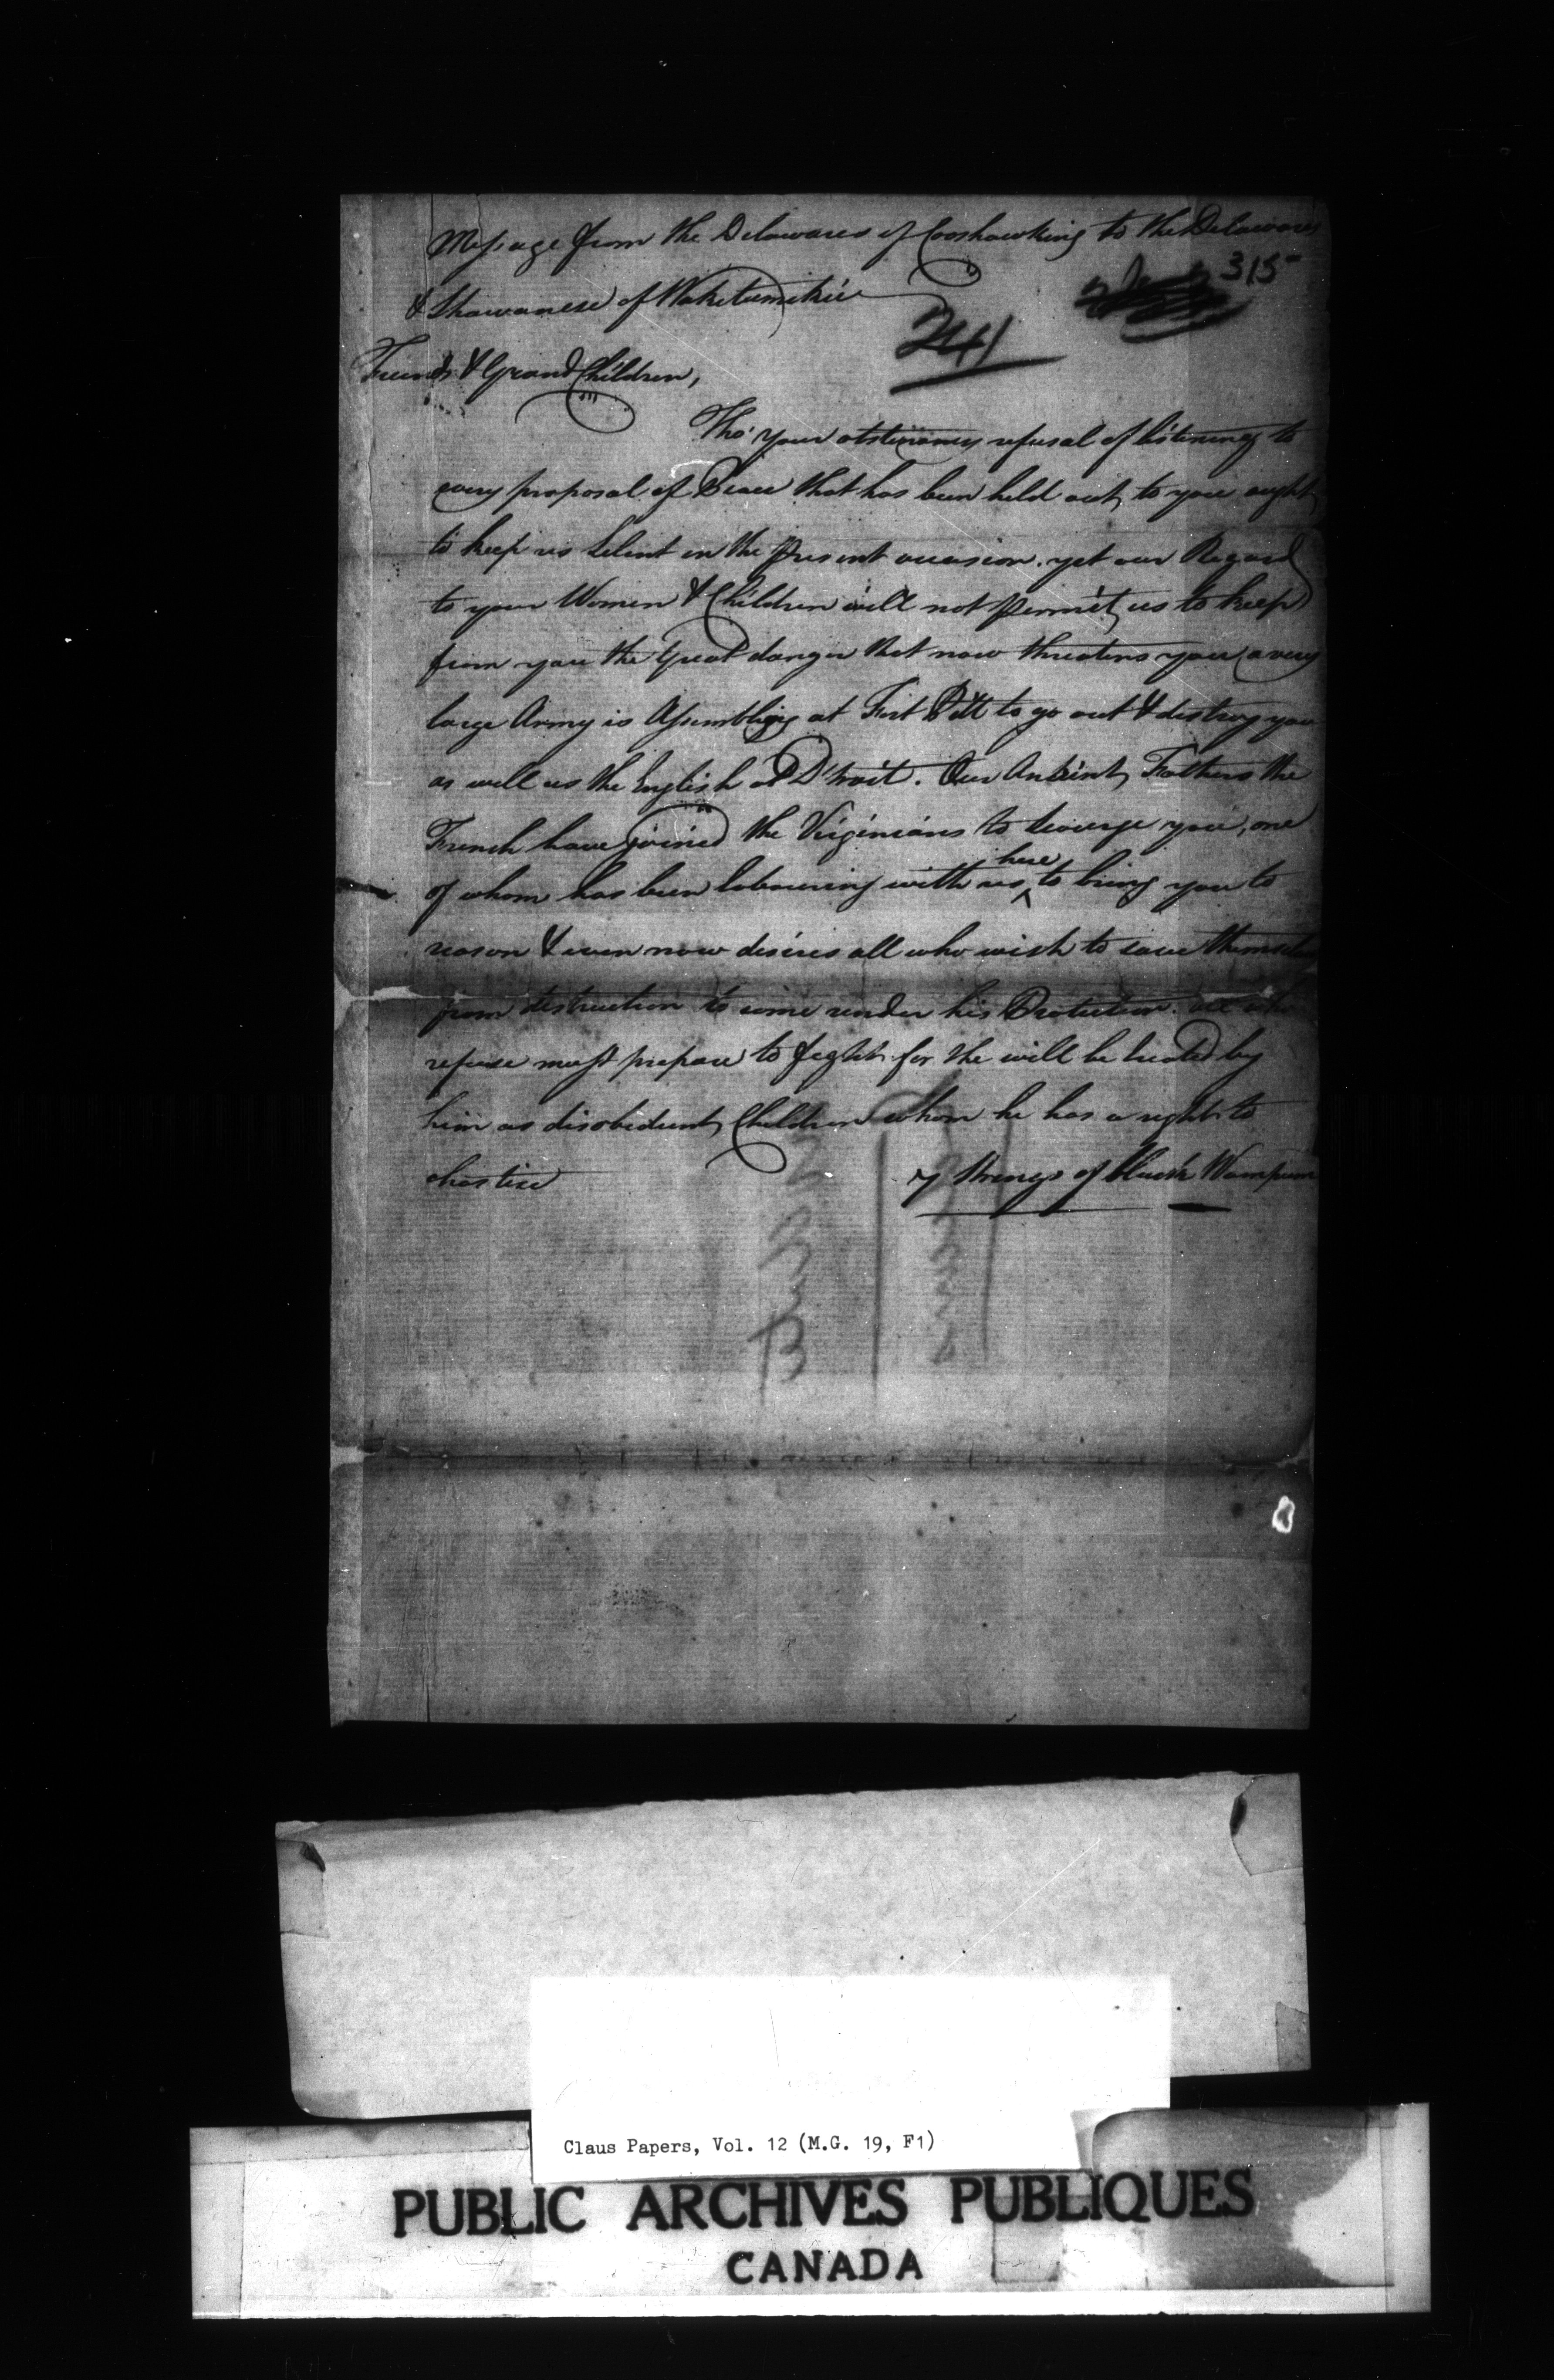 Message from the Delawares of Cooshawking to the Delawares
315
& Shawanese of Waketumikie
241
Friends & Grand Children,
Tho' your obstinancy refusal of listening to
every proposal of Peace that has been held out to you ought
to keep us Silent on the present occasion. yet our Regard
to your Women & Children will not permit us to keep
from you the Great danger that now threatens you a very
large Army is Assembling at Fort Pitt to go out & destroy you
as well as the English at D'troit. Our Antient Fathers the
French have joined the Virginians to scourge you, one
of whom has been labouring with us here to bring you to
reason & even now desires all who wish to save themselves
from destruction to come under his Protection. all who
refuse must prepare to fight for the will be treated by
him as disobedient Children whom he has a right to
chastise
7 Strings of black Wampum
Claus Papers, Vol. 12 (M.G. 19, F1)
PUBLIC ARCHIVES PUBLIQUES
CANADA